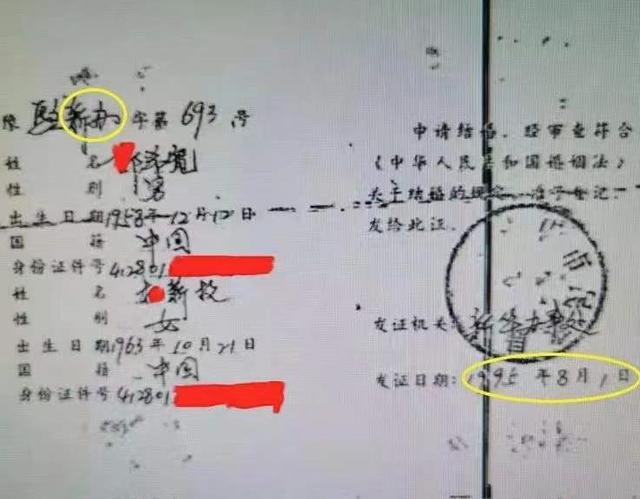 驻新办 字第 693 号
姓 名
性 别 男
出生日期 1958年12月12日
国 籍 中国
身份证件号 412801
姓 名 新枝
性 别 女
出生日期 1963年10月21日
国 籍 中国
身份证件号 412801
申请结婚，经审查符合
《中华人民共和国婚姻法》
关于结婚的规定，准予登记，
发给此证。
发证机关：新华办事处
发证日期：1995 年 8 月 1 日